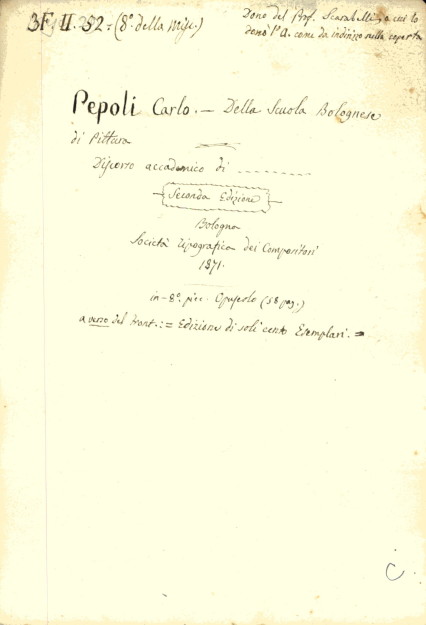 3F. II. 52 = (8º. della Misc.)
Dono del Prof. Scarabelli, a cui lo
donò l'A. come da indirizzo sulla coperta
Pepoli Carlo. — Della Scuola Bolognese
di Pittura
Discorso accademico di - - - - - - - -
Seconda Edizione
Bologna
Società Tipografica dei Compositori
1871.
in-8º. picc. Opuscolo (58 pag.)
a verso del front.: = Edizione di soli cento Esemplari. =
C.